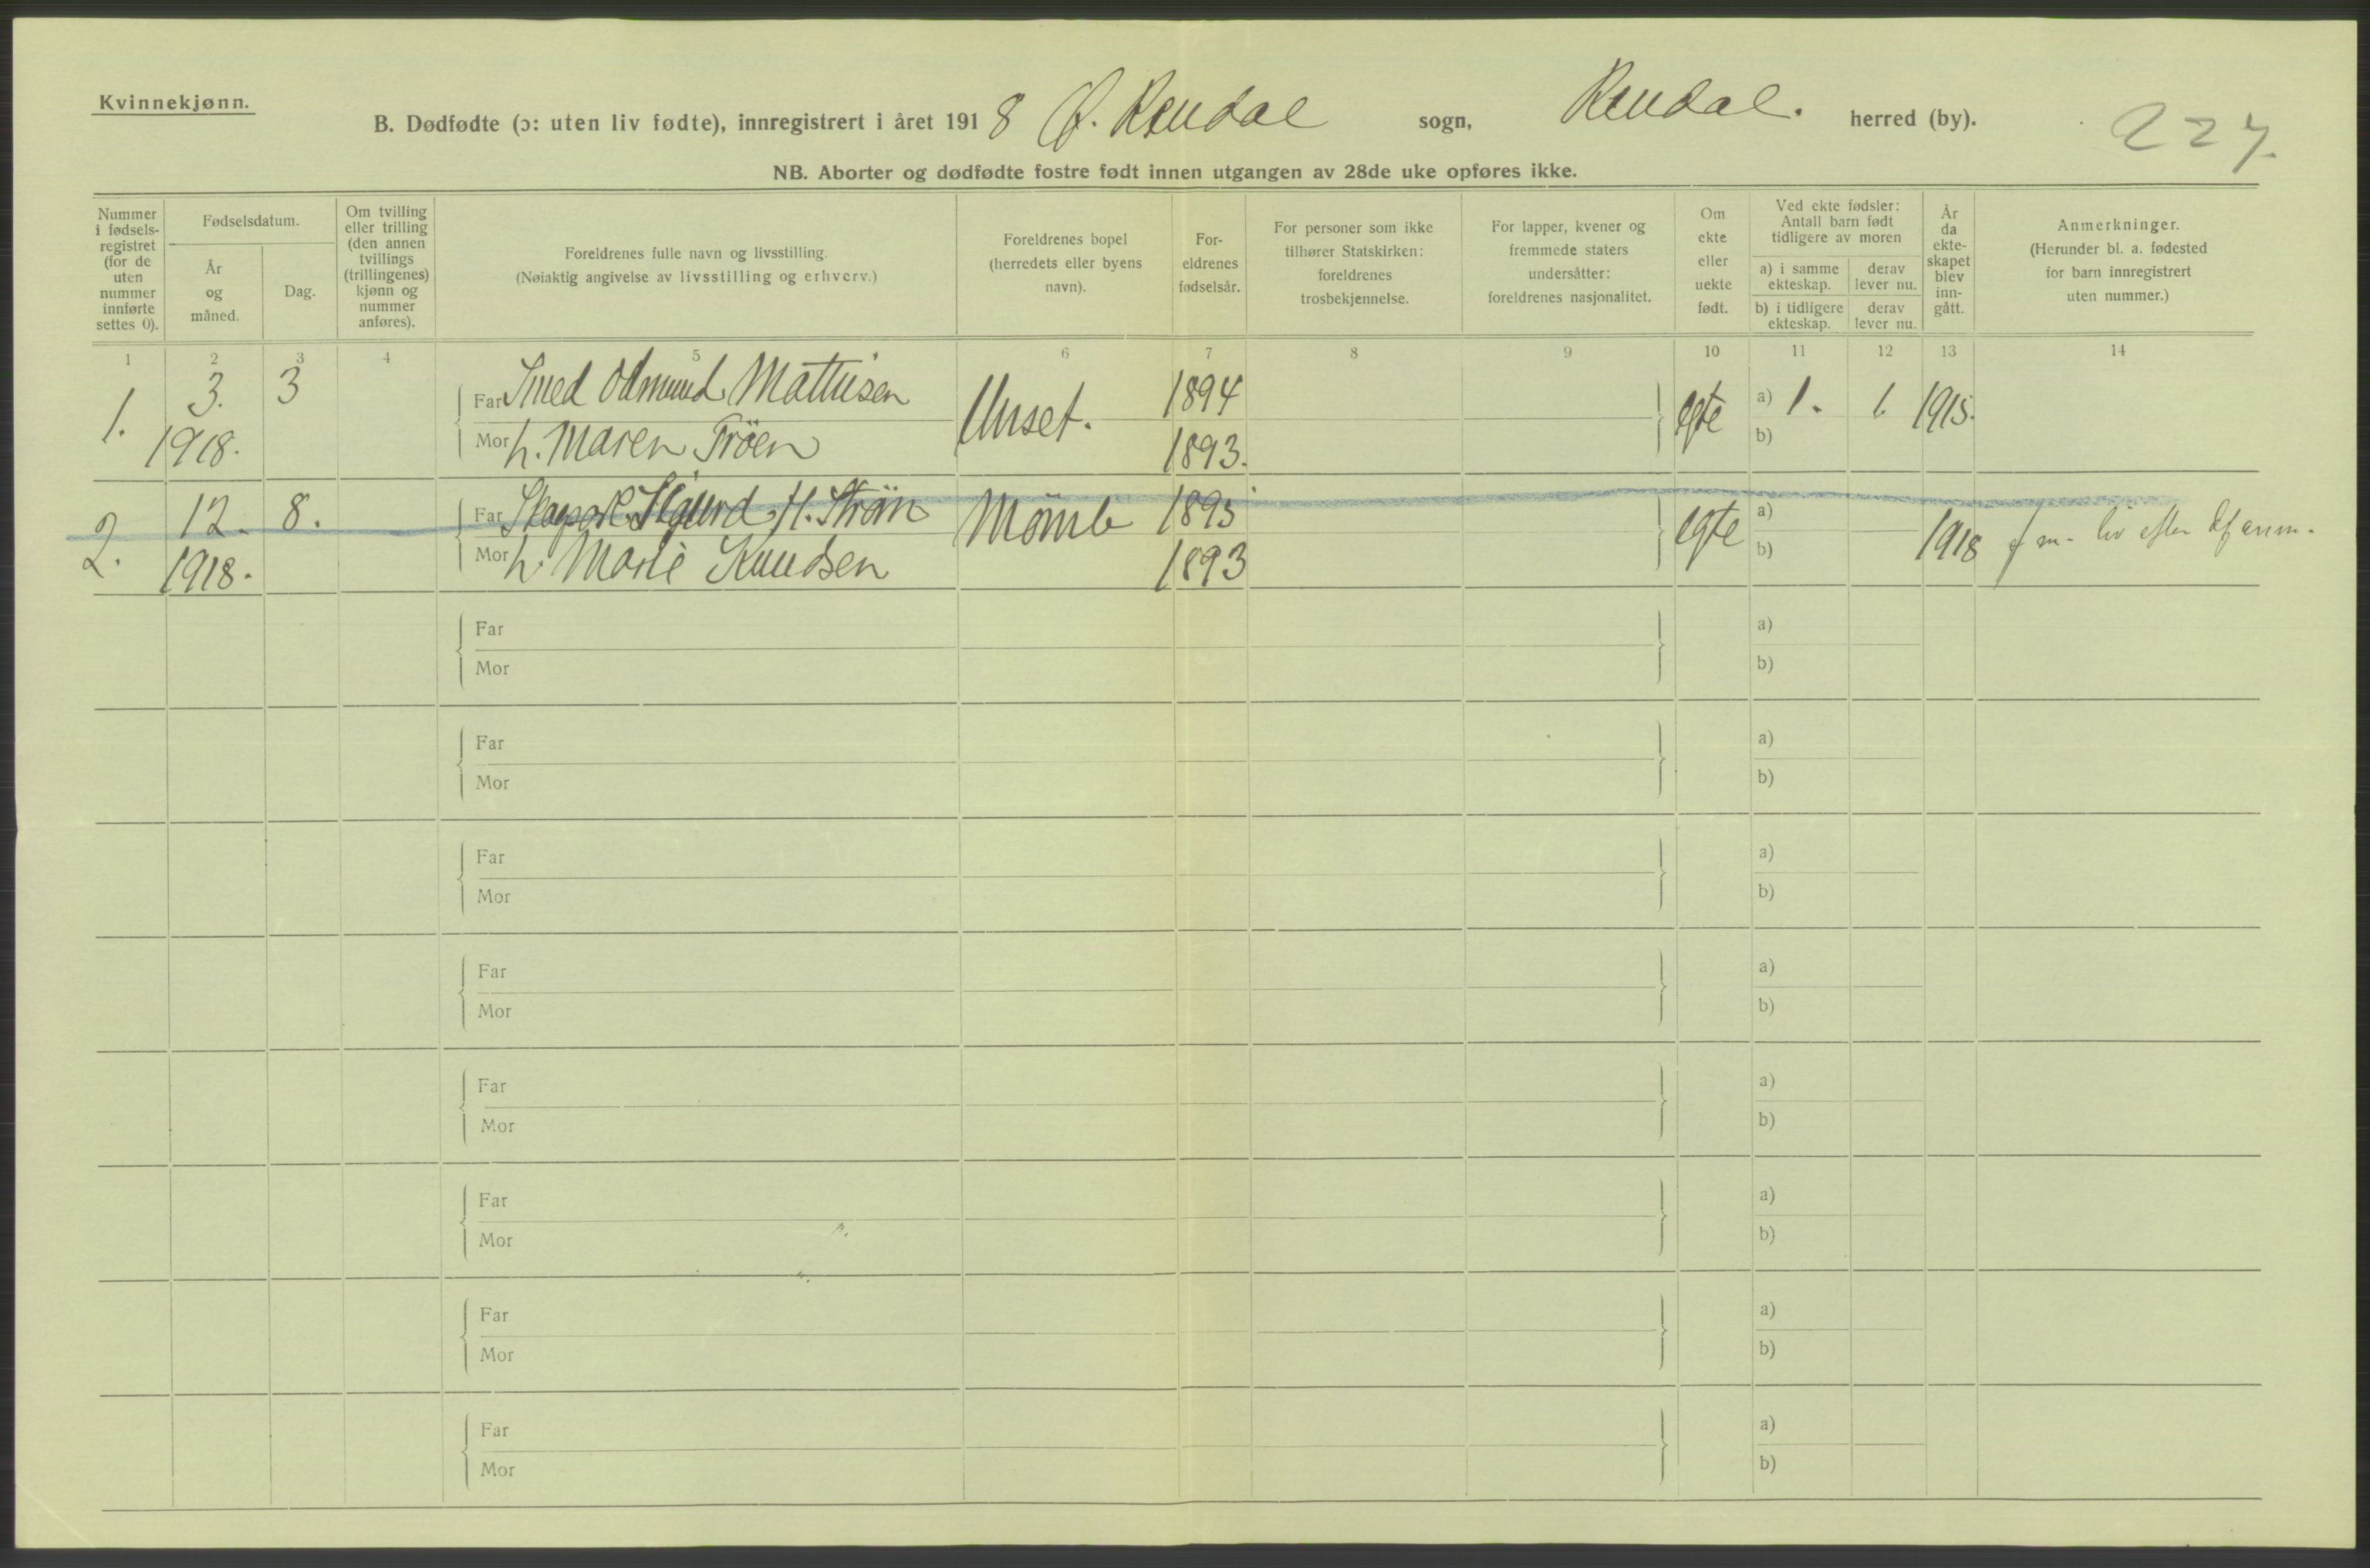 Kvinnekjønn.
B. Dødfødte (ɔ: uten liv fødte), innregistrert i året 1918 Ø. Rendal sogn, Rendal. herred (by).
227
NB. Aborter og dødfødte fostre født innen utgangen av 28de uke opføres ikke.
Nummer i fødselsregistret (for de uten nummer innførte settes 0).
Fødselsdatum.
År og måned.
Dag.
Om tvilling eller trilling (den annen tvillings (trillingenes) kjønn og nummer anføres).
Foreldrenes fulle navn og livsstilling.
(Nøiaktig angivelse av livsstilling og erhverv.)
Foreldrenes bopel (herredets eller byens navn).
Foreldrenes fødselsår.
For personer som ikke tilhører Statskirken: foreldrenes trosbekjennelse.
For lapper, kvener og fremmede staters undersåtter: foreldrenes nasjonalitet.
Om ekte eller uekte født.
Ved ekte fødsler: Antall barn født tidligere av moren
a) i samme ekteskap.
derav lever nu.
b) i tidligere ekteskap.
derav lever nu.
År da ekteskapet blev inngått.
Anmerkninger.
(Herunder bl. a. fødested for barn innregistrert uten nummer.)
1 2 3 4 5 6 7 8 9 10 11 12 13 14
1. 3. 3 Far Smed Odmund Mattisen Unset. 1894 egte a) 1. 1 1915.
1918. Mor h. Maren Trøen 1893. b)
2. 12. 8. Far Sigurd H. Strøm 1895 egte a) 1918 f m. liv efter
1918. Mor h. Marie Knudsen 1893 b)
Far a)
Mor b)
Far a)
Mor b)
Far a)
Mor b)
Far a)
Mor b)
Far a)
Mor b)
Far a)
Mor b)
Far a)
Mor b)
Far a)
Mor b)